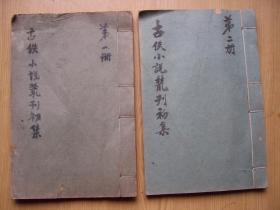 第一册
古佚小說叢刊初集
第二册
古佚小說叢刊初集